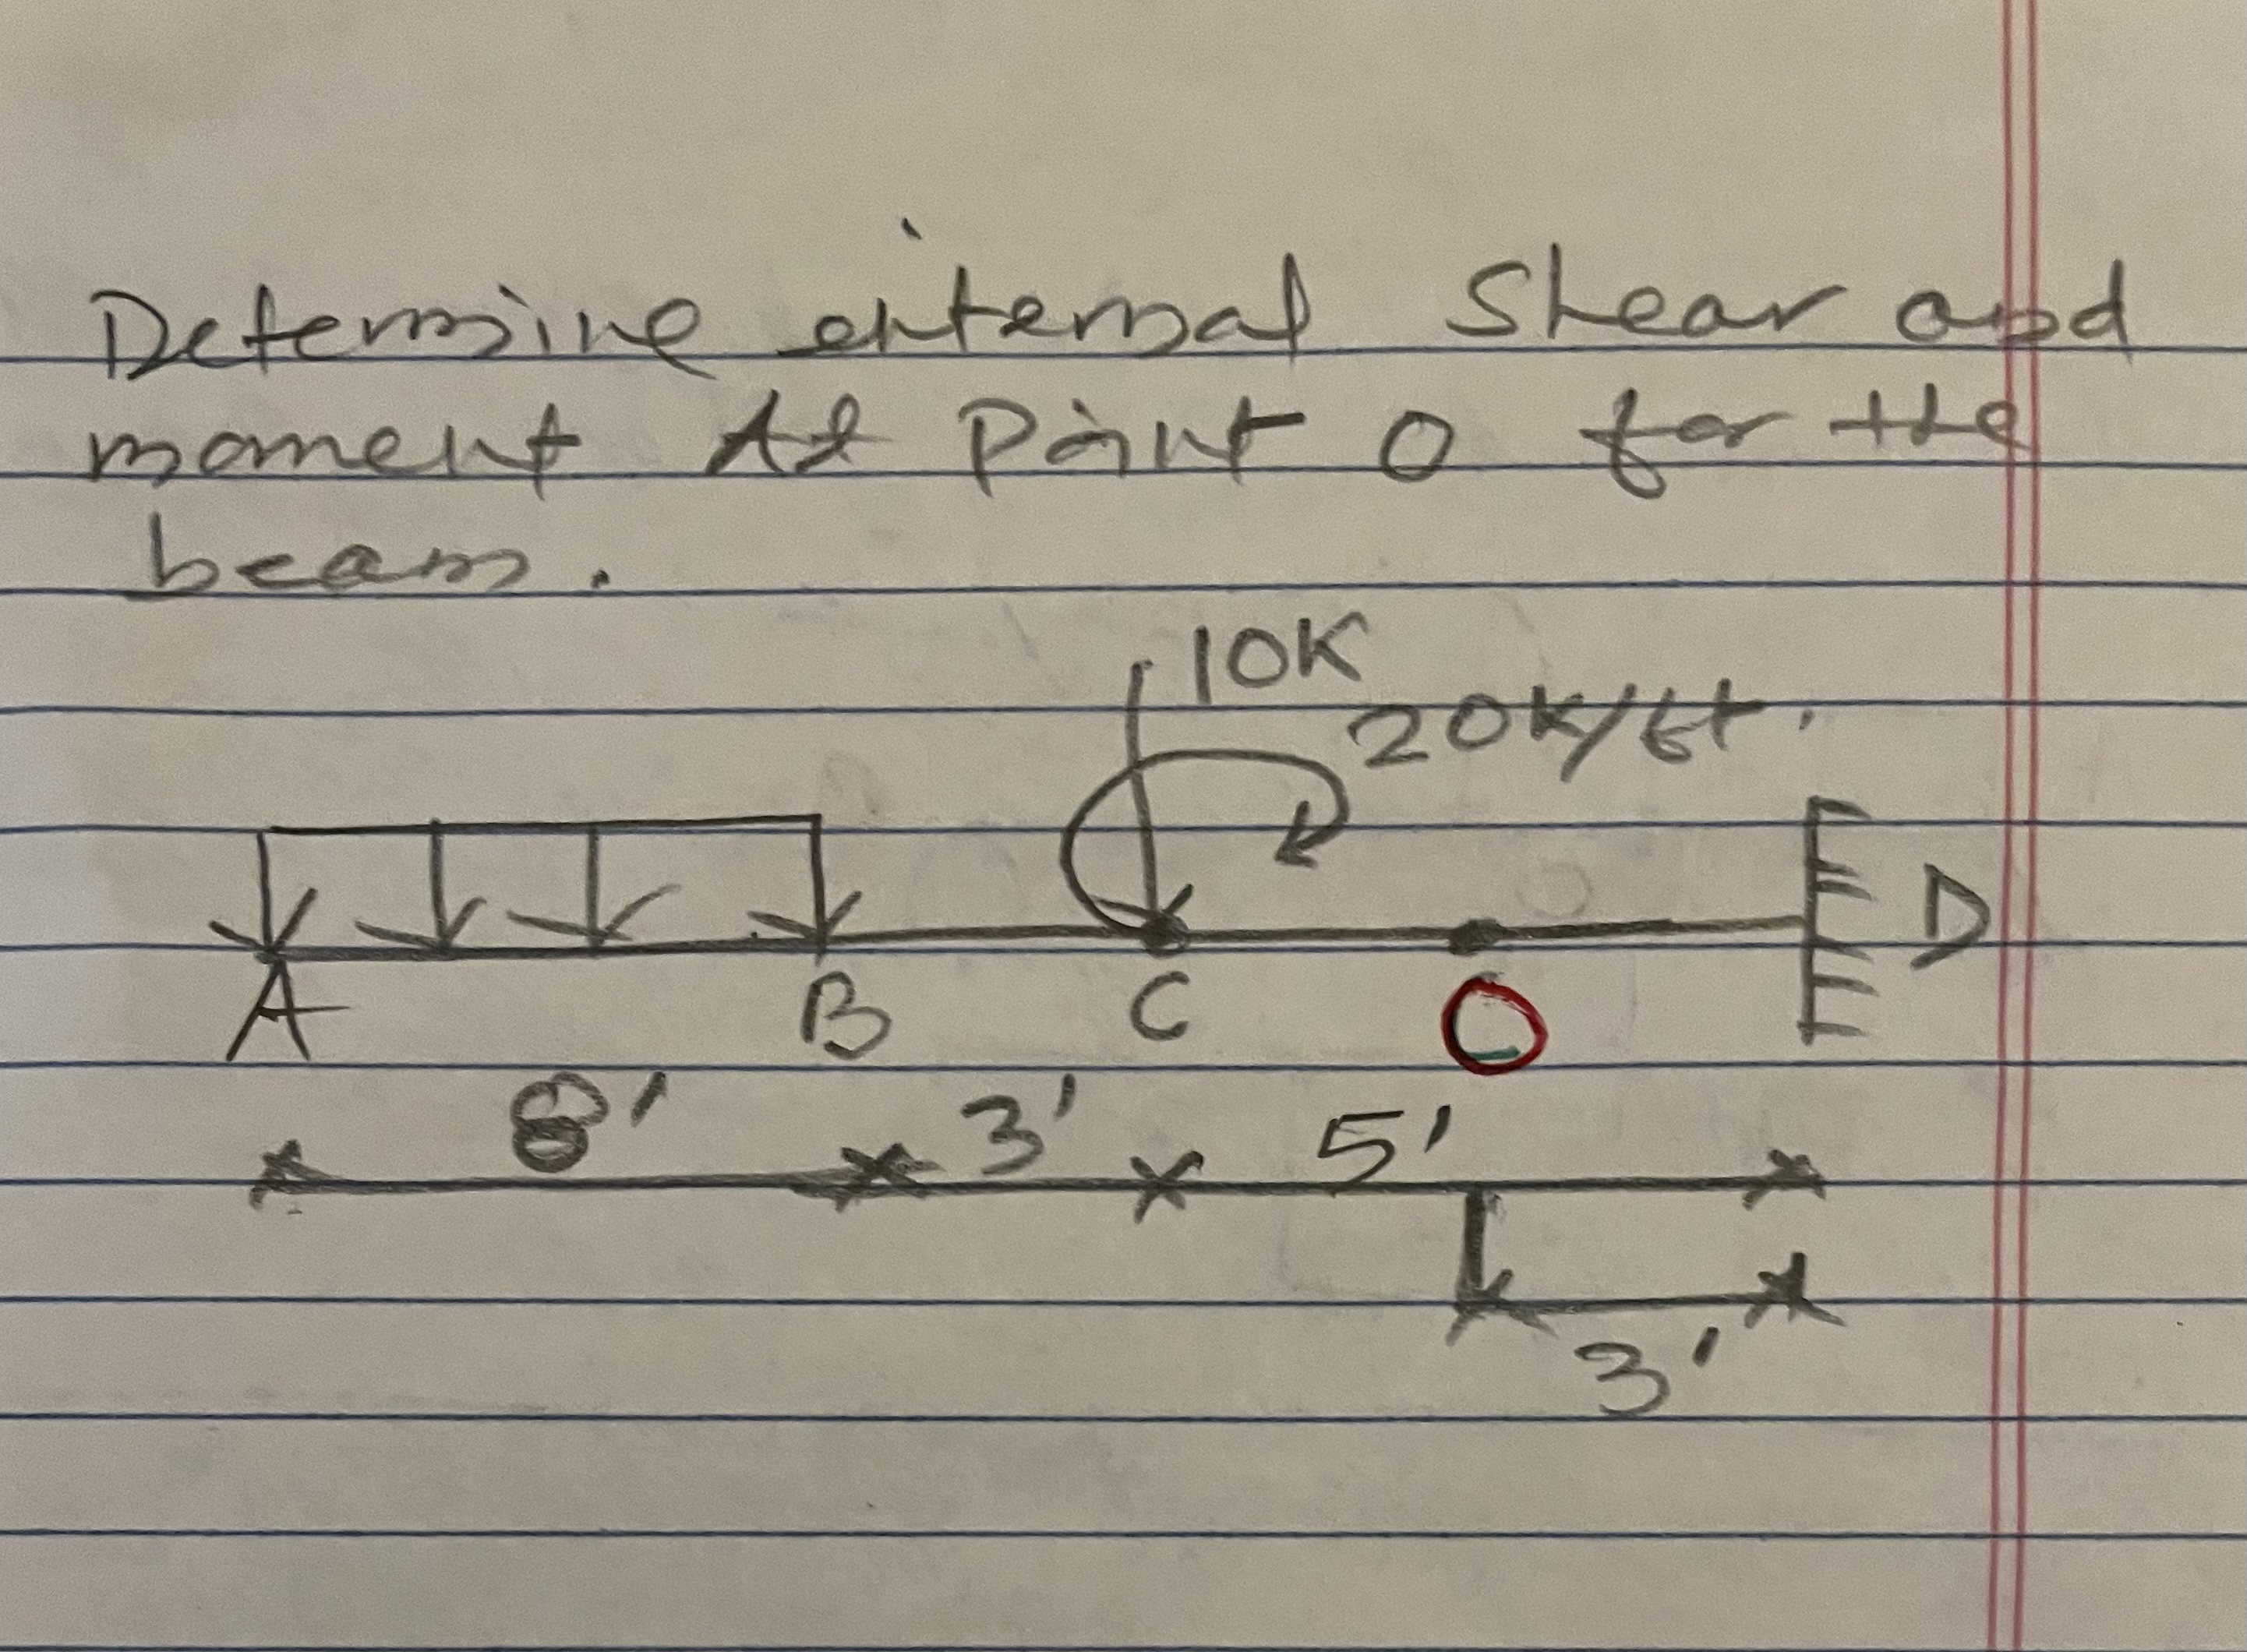 Determine internal Shear and
moment At Point O for the
beam.
10K
20K/ft.
A B C O D
8' 3' 5'
3'